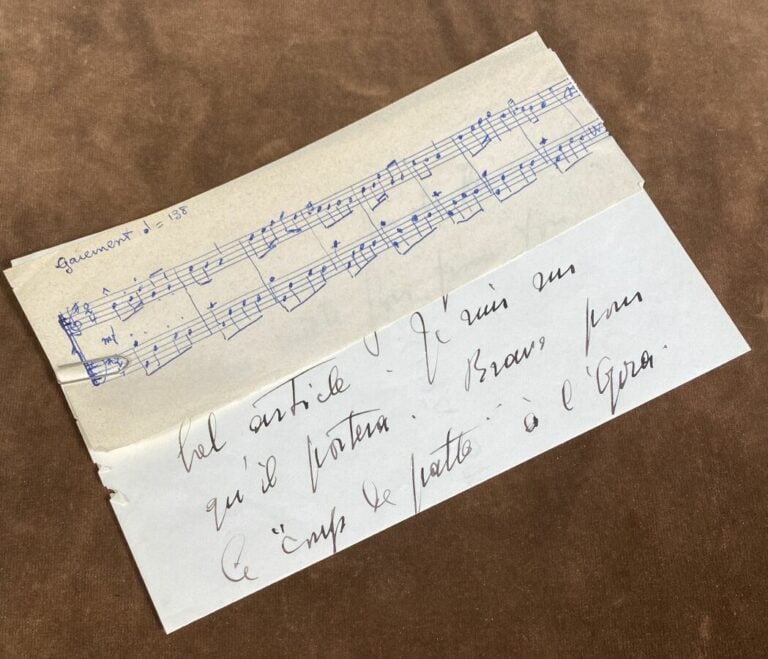 Gaiement ♩ = 138
mf
bel article. Je suis sûr
qu'il portera. Bravo pour
le "coup de patte" à l'